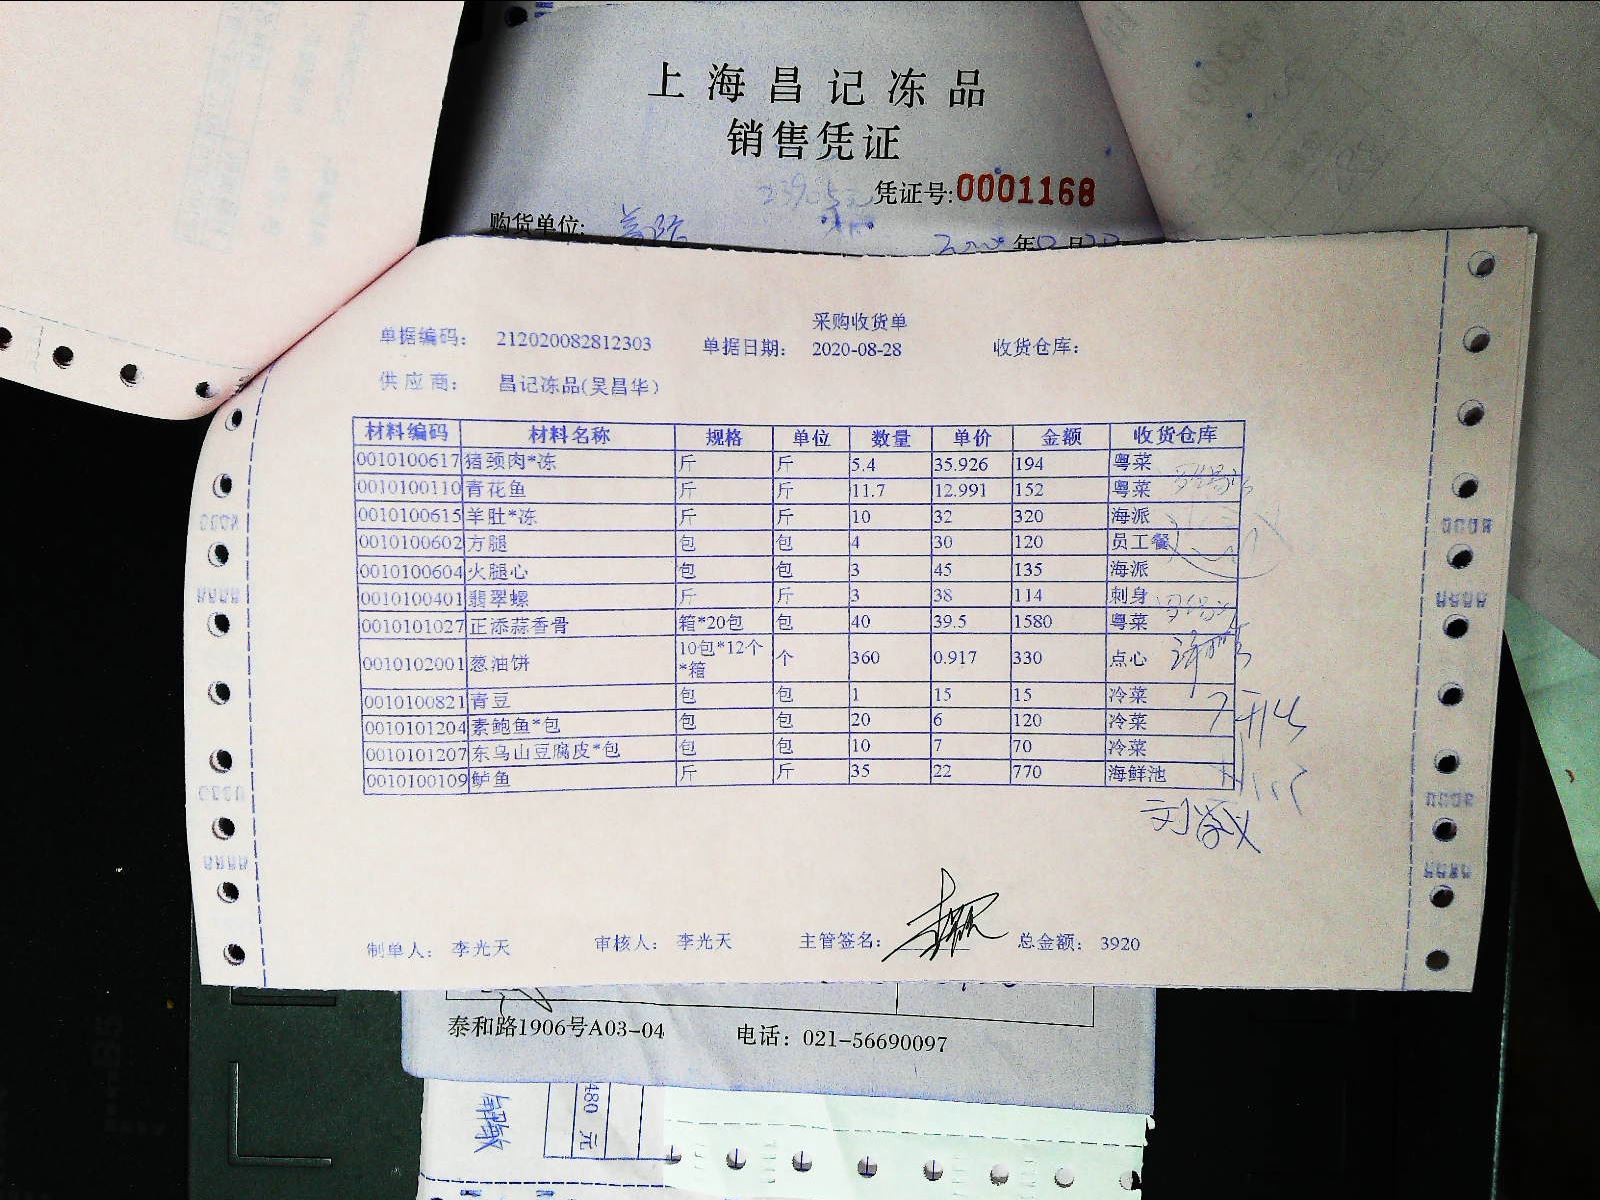 上海昌记冻品
销售凭证
凭证号:0001168
购货单位:
年 月
采购收货单
单据编码: 212020082812303 单据日期: 2020-08-28 收货仓库:
供应商: 昌记冻品(吴昌华)
材料编码 材料名称 规格 单位 数量 单价 金额 收货仓库
0010100617 猪颈肉*冻 斤 斤 5.4 35.926 194 粤菜
0010100110 青花鱼 斤 斤 11.7 12.991 152 粤菜
0010100615 羊肚*冻 斤 斤 10 32 320 海派
0010100602 方腿 包 包 4 30 120 员工餐
0010100604 火腿心 包 包 3 45 135 海派
0010100401 翡翠螺 斤 斤 3 38 114 刺身
0010101027 正添蒜香骨 箱*20包 包 40 39.5 1580 粤菜
0010102001 葱油饼 10包*12个*箱 个 360 0.917 330 点心
0010100821 青豆 包 包 1 15 15 冷菜
0010101204 素鲍鱼*包 包 包 20 6 120 冷菜
0010101207 东乌山豆腐皮*包 包 包 10 7 70 冷菜
0010100109 鲈鱼 斤 斤 35 22 770 海鲜池
制单人: 李光天 审核人: 李光天 主管签名: 总金额: 3920
泰和路1906号A03-04 电话: 021-56690097
480 元